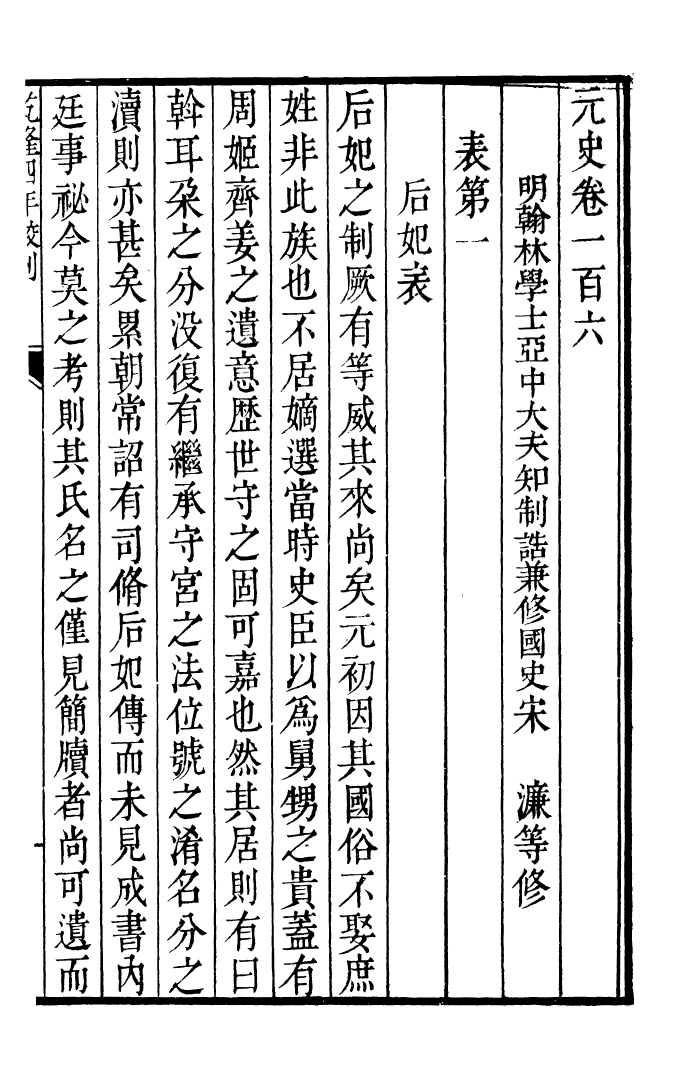 元史卷一百六
明翰林學士亞中大夫知制誥兼修國史宋　濂等修
表第一
后妃表
后妃之制厥有等威其來尚矣元初因其國俗不娶庶
姓非此族也不居嫡選當時史臣以爲舅甥之貴蓋有
周姬齊姜之遺意歴世守之固可嘉也然其居則有曰
斡耳朶之分没復有繼承守宮之法位號之淆名分之
瀆則亦甚矣累朝常詔有司脩后妃傳而未見成書內
廷事祕今莫之考則其氏名之僅見簡牘者尚可遺而
乾隆四年校刊